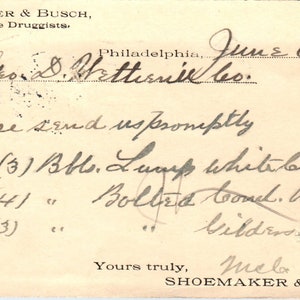 ER & BUSCH,
e Druggists.
Philadelphia, June
eo. D. Wetherill Co.
se send us promptly
(3) Bbls. Lump White
4) " Bolted Cond. W
3) " " Gilders
Yours truly,
SHOEMAKER &